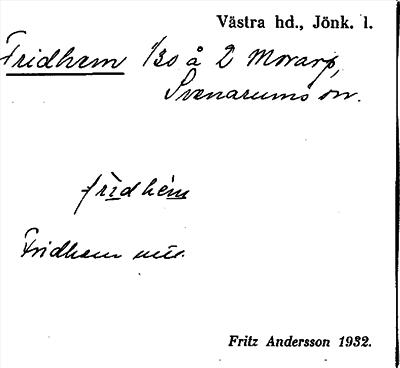 Västra hd., Jönk. l.
Fridhem 1/30 å 2 Morarp,
Svenarums sn.
frìdhé̱m
Fridhem
Fritz Andersson 1932.